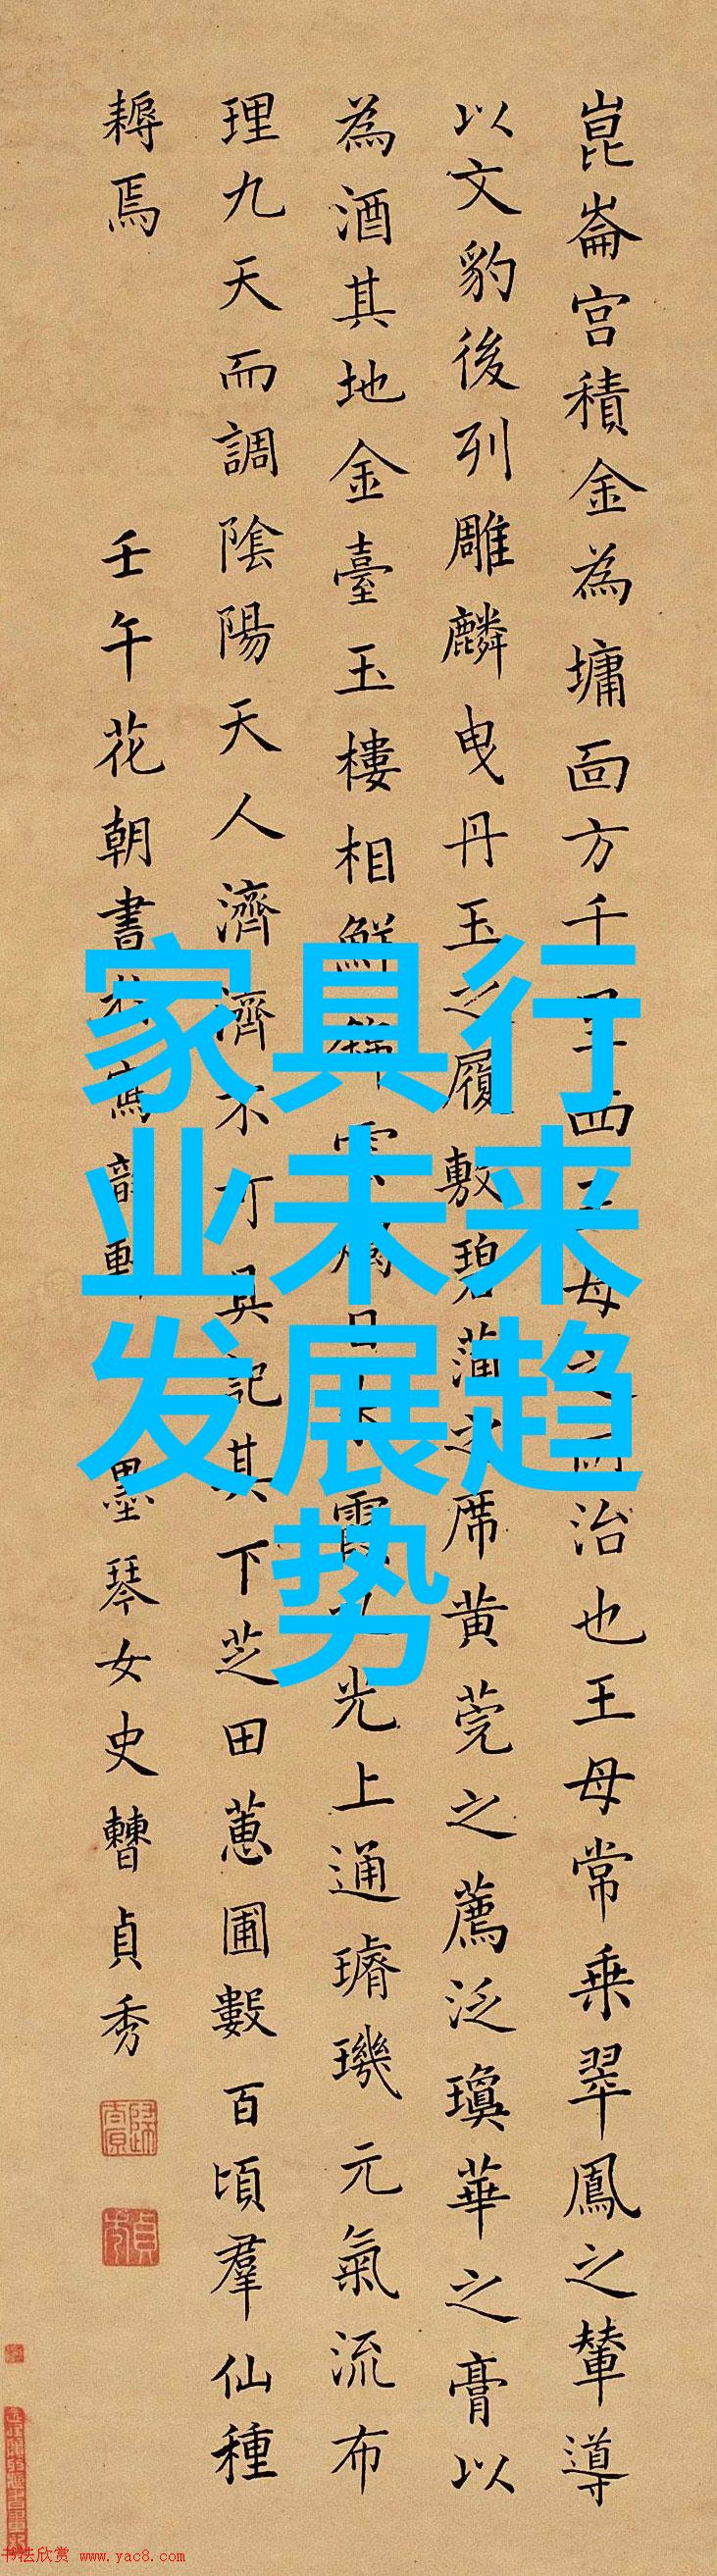 崑崙宮積金為墉面方千里西王母之所治也王母常乘翠鳳之輦導
以文豹後列雕麟曳丹玉之履敷碧蒲之席黃莞之薦泛瓊華之膏以
為酒其地金臺玉樓相鮮光上通璿璣元氣流布
理九天而調陰陽天人濟濟不可具記其下芝田蕙圃數百頃羣仙種
耨焉
壬午花朝書於寫韻軒 墨琴女史曹貞秀
家具行
业未来
发展趋
势
书法欣赏 www.yac8.com